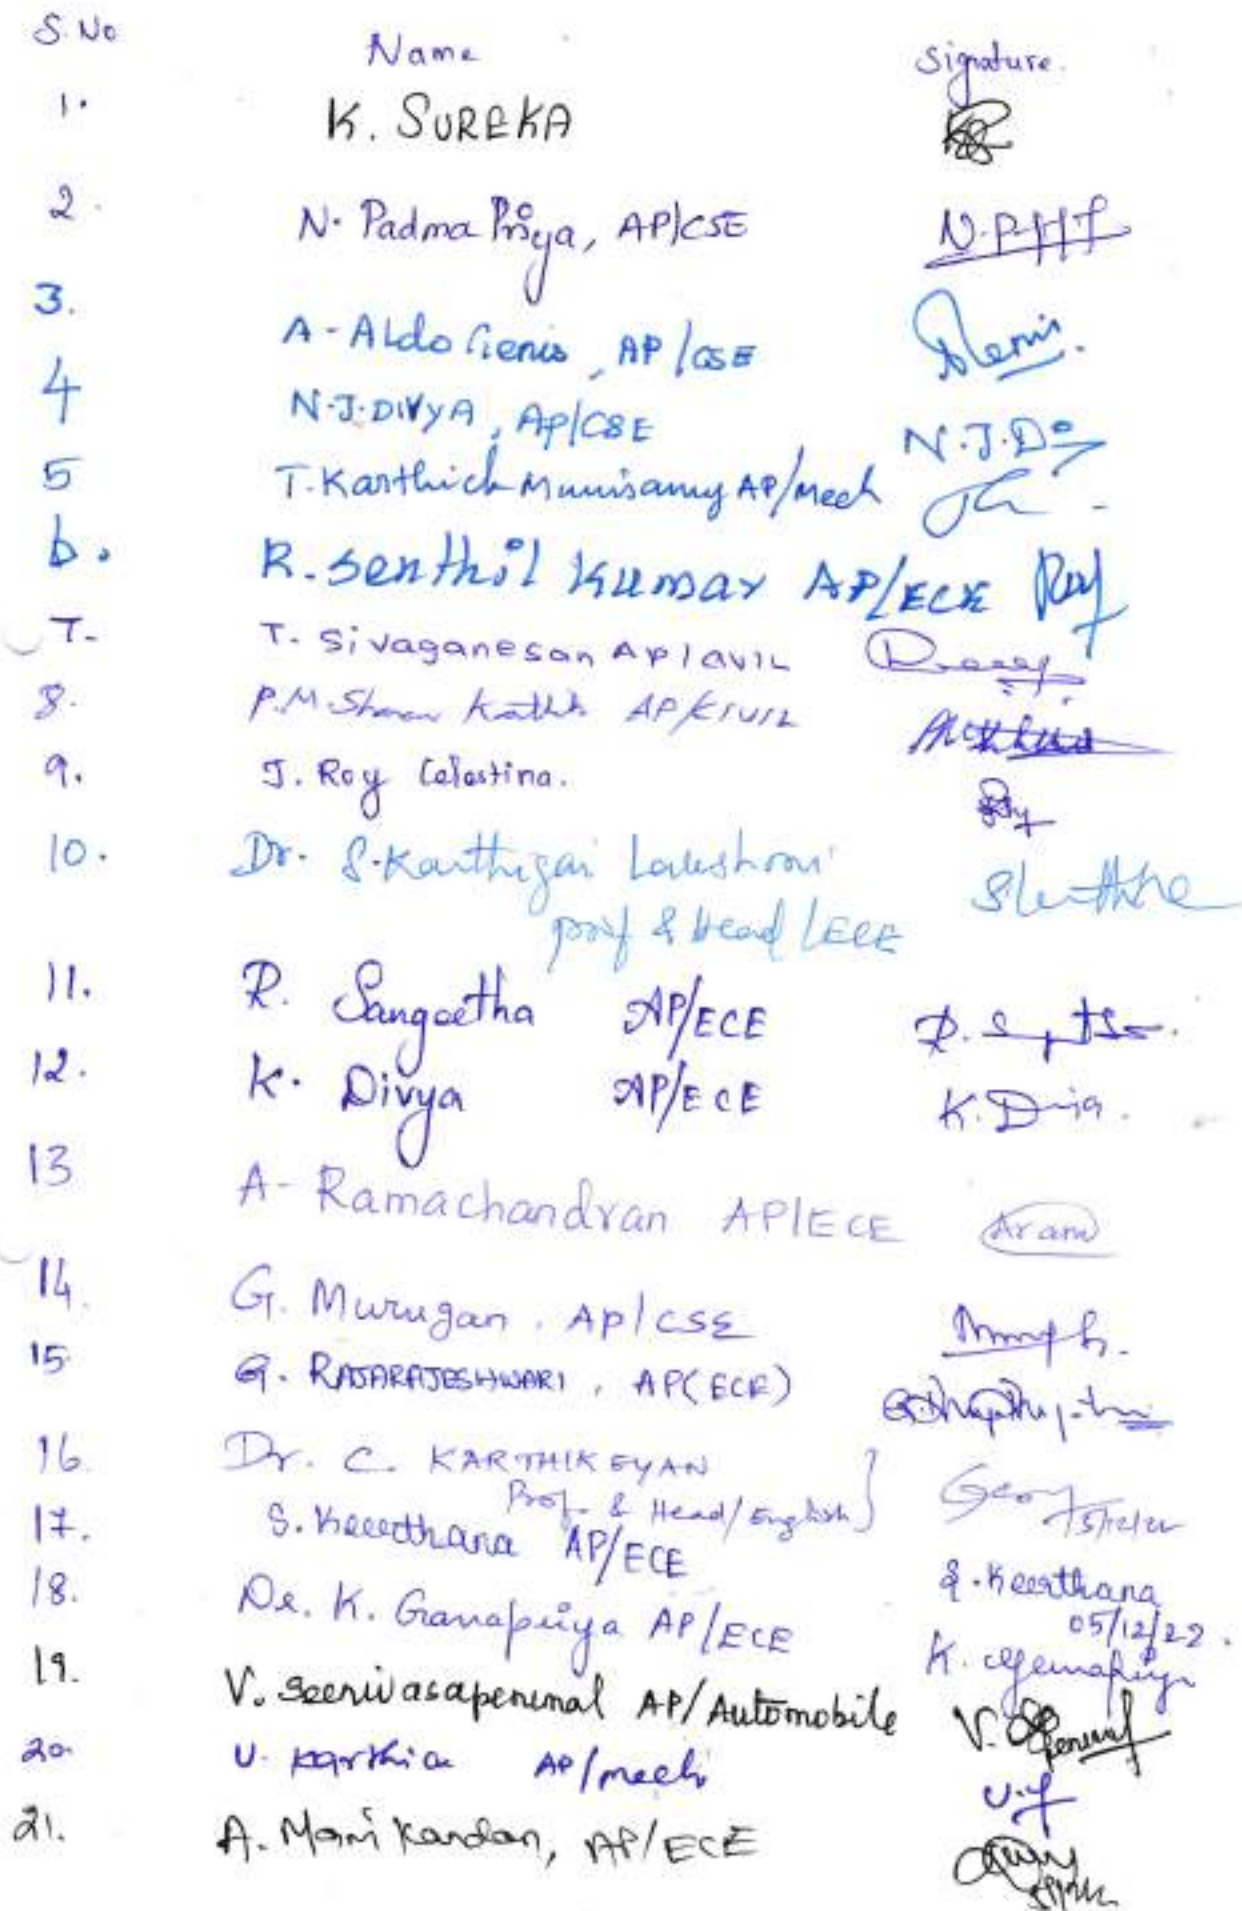 S.No Name Signature.
1. K. SUREKA
2. N. Padma Priya, AP/CSE N.P
3. A. Aldo Genis, AP/CSE
4 N.J.DIVYA, AP/CSE N.J.Di
5 T. Karthick Munisamy AP/Mech
6. R. Senthil Kumar AP/ECE
7. T. Sivaganesan AP/CIVIL
8. P.M. Karthik AP/CIVIL
9. J. Roy Celestina.
10. Dr. S. Karthigai Lakshmi
Prof & Head/ECE
11. R. Sangeetha AP/ECE
12. K. Divya AP/ECE K. Divya.
13 A. Ramachandran AP/ECE Aram
14. G. Murugan, AP/CSE
15. G. RAJARAJESHWARI, AP(ECE)
16. Dr. C. KARTHIKEYAN
Prof. & Head/English
17. S. Keerthana AP/ECE S. Keerthana
05/12/22.
18. Dr. K. Ganapriya AP/ECE K. Ganapriya
19. V. Seenivasaperumal AP/Automobile V. Perumal
20. U. Karthic AP/Mech
21. A. Mani Kandan, AP/ECE